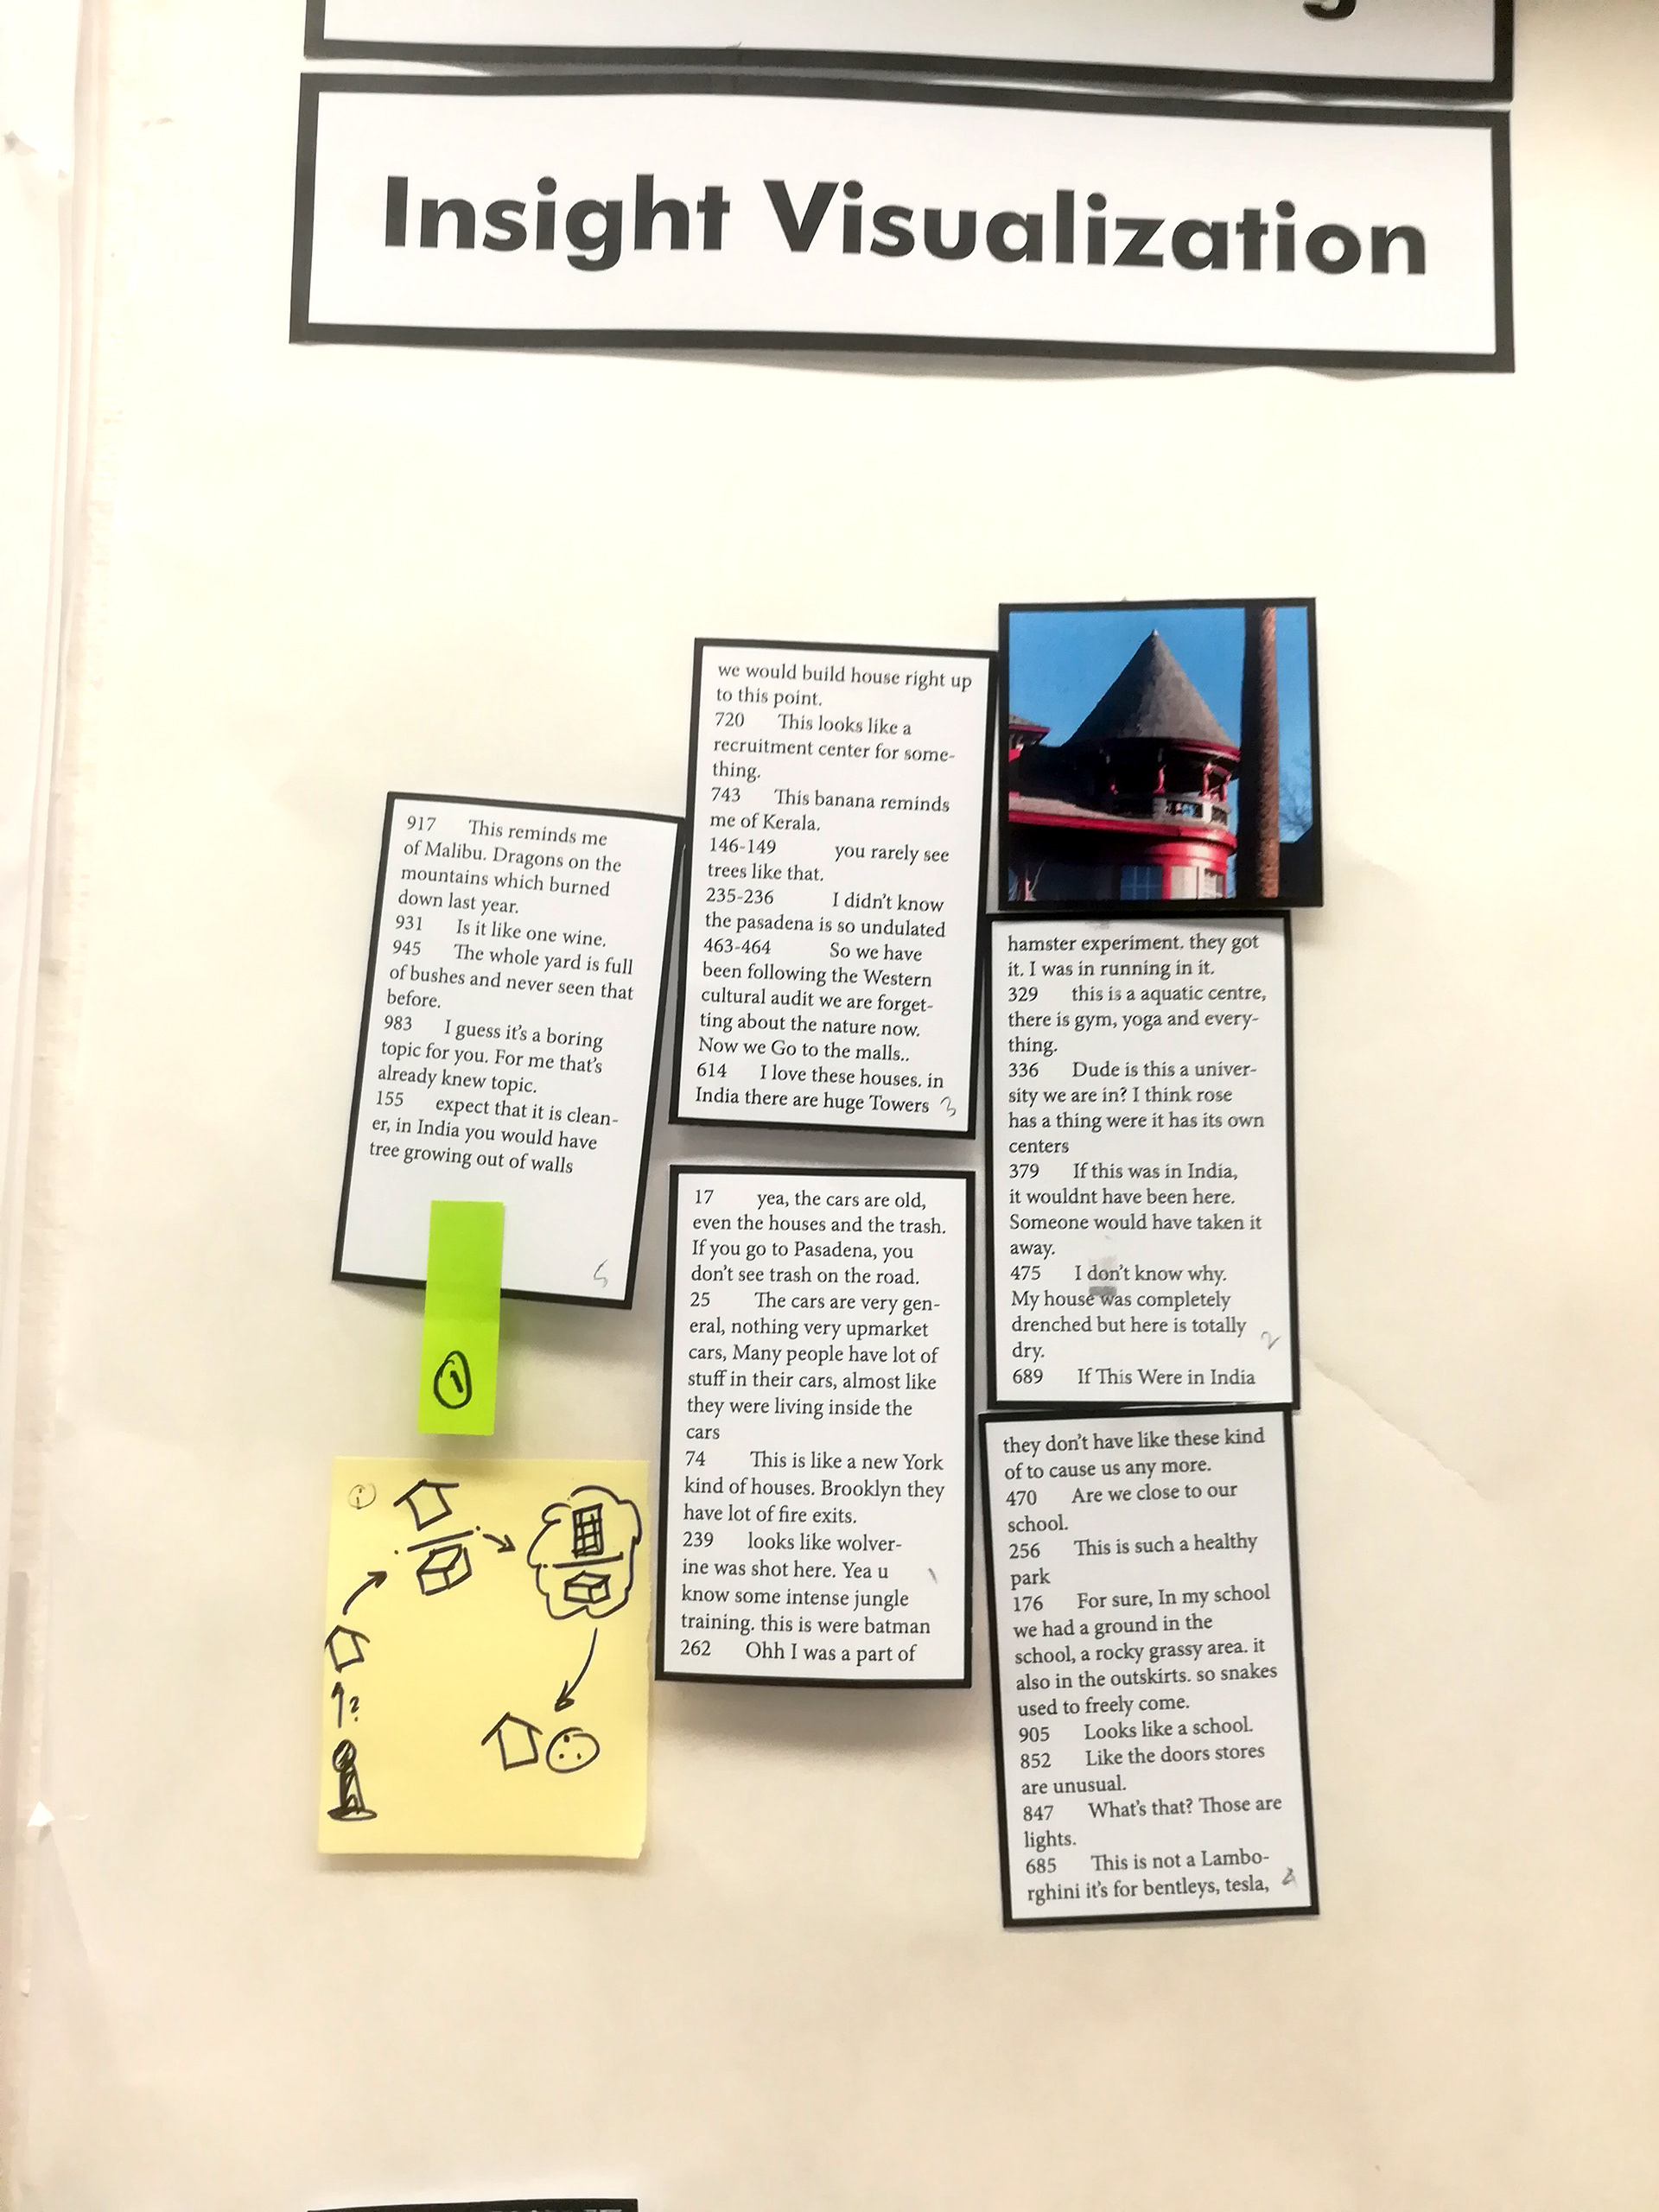 Insight Visualization
917 This reminds me
of Malibu. Dragons on the
mountains which burned
down last year.
931 Is it like one wine.
945 The whole yard is full
of bushes and never seen that
before.
983 I guess it's a boring
topic for you. For me that's
already knew topic.
155 expect that it is clean-
er, in India you would have
tree growing out of walls
5
1
1
?
we would build house right up
to this point.
720 This looks like a
recruitment center for some-
thing.
743 This banana reminds
me of Kerala.
146-149 you rarely see
trees like that.
235-236 I didn't know
the pasadena is so undulated
463-464 So we have
been following the Western
cultural audit we are forget-
ting about the nature now.
Now we Go to the malls..
614 I love these houses. in
India there are huge Towers
3
17 yea, the cars are old,
even the houses and the trash.
If you go to Pasadena, you
don't see trash on the road.
25 The cars are very gen-
eral, nothing very upmarket
cars, Many people have lot of
stuff in their cars, almost like
they were living inside the
cars
74 This is like a new York
kind of houses. Brooklyn they
have lot of fire exits.
239 looks like wolver-
ine was shot here. Yea u
know some intense jungle
training. this is were batman
262 Ohh I was a part of
hamster experiment. they got
it. I was in running in it.
329 this is a aquatic centre,
there is gym, yoga and every-
thing.
336 Dude is this a univer-
sity we are in? I think rose
has a thing were it has its own
centers
379 If this was in India,
it wouldnt have been here.
Someone would have taken it
away.
475 I don't know why.
My house was completely
drenched but here is totally
dry.
2
689 If This Were in India
they don't have like these kind
of to cause us any more.
470 Are we close to our
school.
256 This is such a healthy
park
176 For sure, In my school
we had a ground in the
school, a rocky grassy area. it
also in the outskirts. so snakes
used to freely come.
905 Looks like a school.
852 Like the doors stores
are unusual.
847 What's that? Those are
lights.
685 This is not a Lambo-
rghini it's for bentleys, tesla,